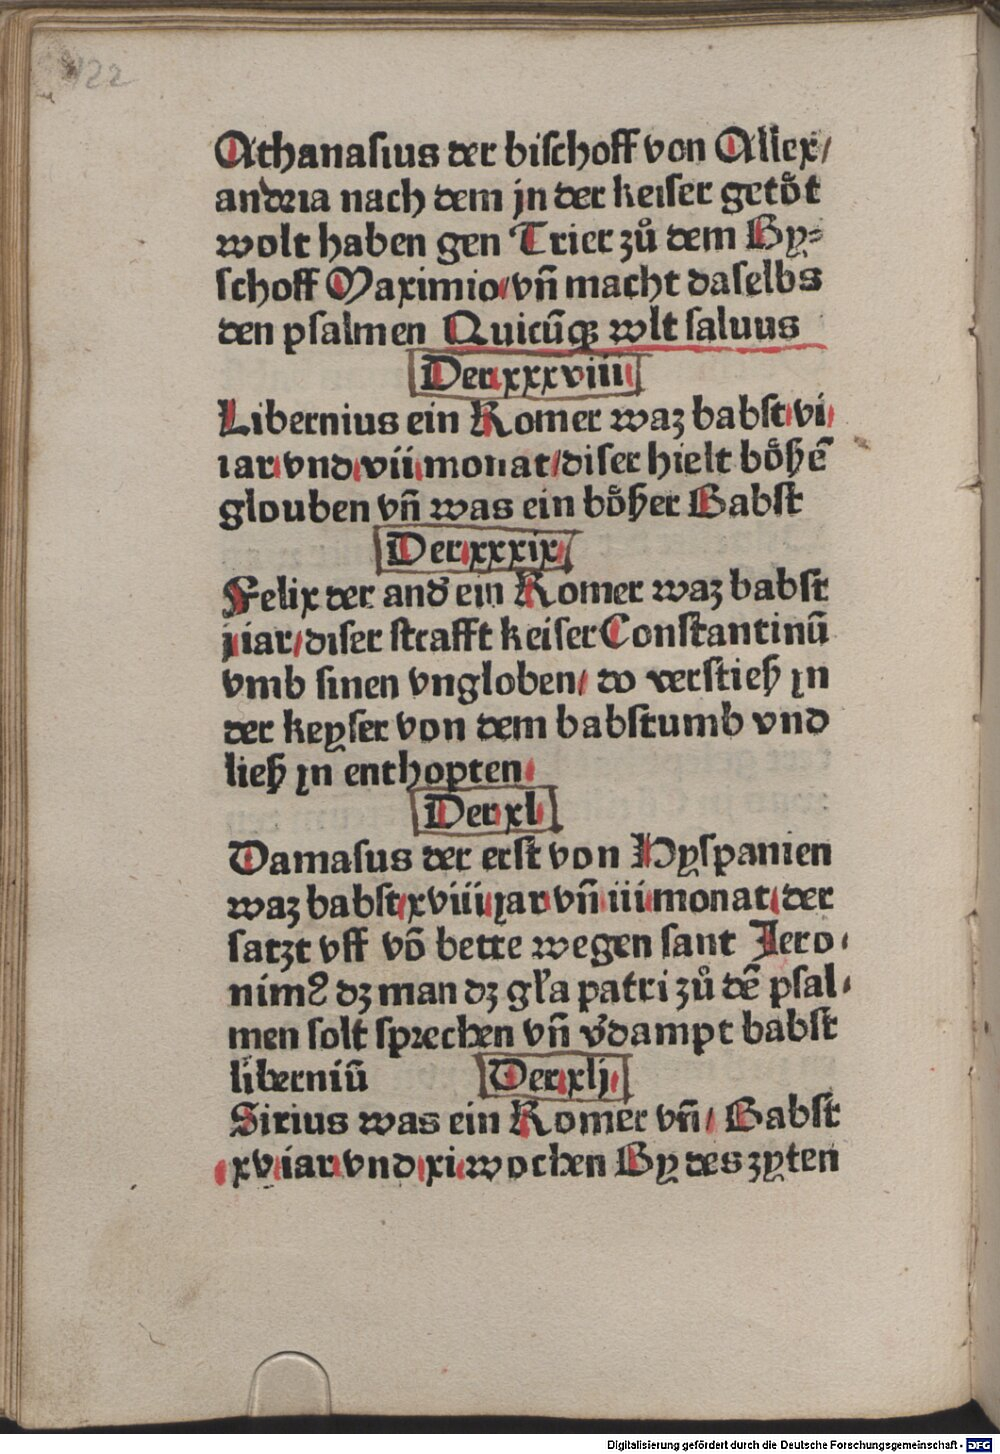 122
Athanasius der bischoff von Allex/
andria nach dem jn der keiser getoͤt
wolt haben gen Trier zuͦ dem By⸗
schoff Maximio/ vn̄ macht daselbs
den psalmen Quicūqꝫ wlt saluus
Der xxxviii
Libernius ein Romer waz babst vi
iar vnd vii monat/ diser hielt boͤßē
glouben vn̄ was ein boͤßer Babst
Der xxxix
Felix der and̕ ein Romer waz babst
j iar/ diser strafft keiser Constantinū
vmb sinen vngloben/ do verstieß ın
der keyser von dem babstumb vnd
ließ ın enthopten
Der xl
Damasus der erst von Hyspanien
waz babst xviii ıar vn̄ iii monat der
satzt vff vō bette wegen sant Jero⸗
nimꝰ dz man dz gl̕a patri zuͦ dē psal⸗
men solt sprechen vn̄ v̕dampt babst
liberniū Der xlj
Sirius was ein Romer vn̄/ Babst
xv iar vnd xi wochen By des zyten
Digitalisierung gefördert durch die Deutsche Forschungsgemeinschaft - DFG